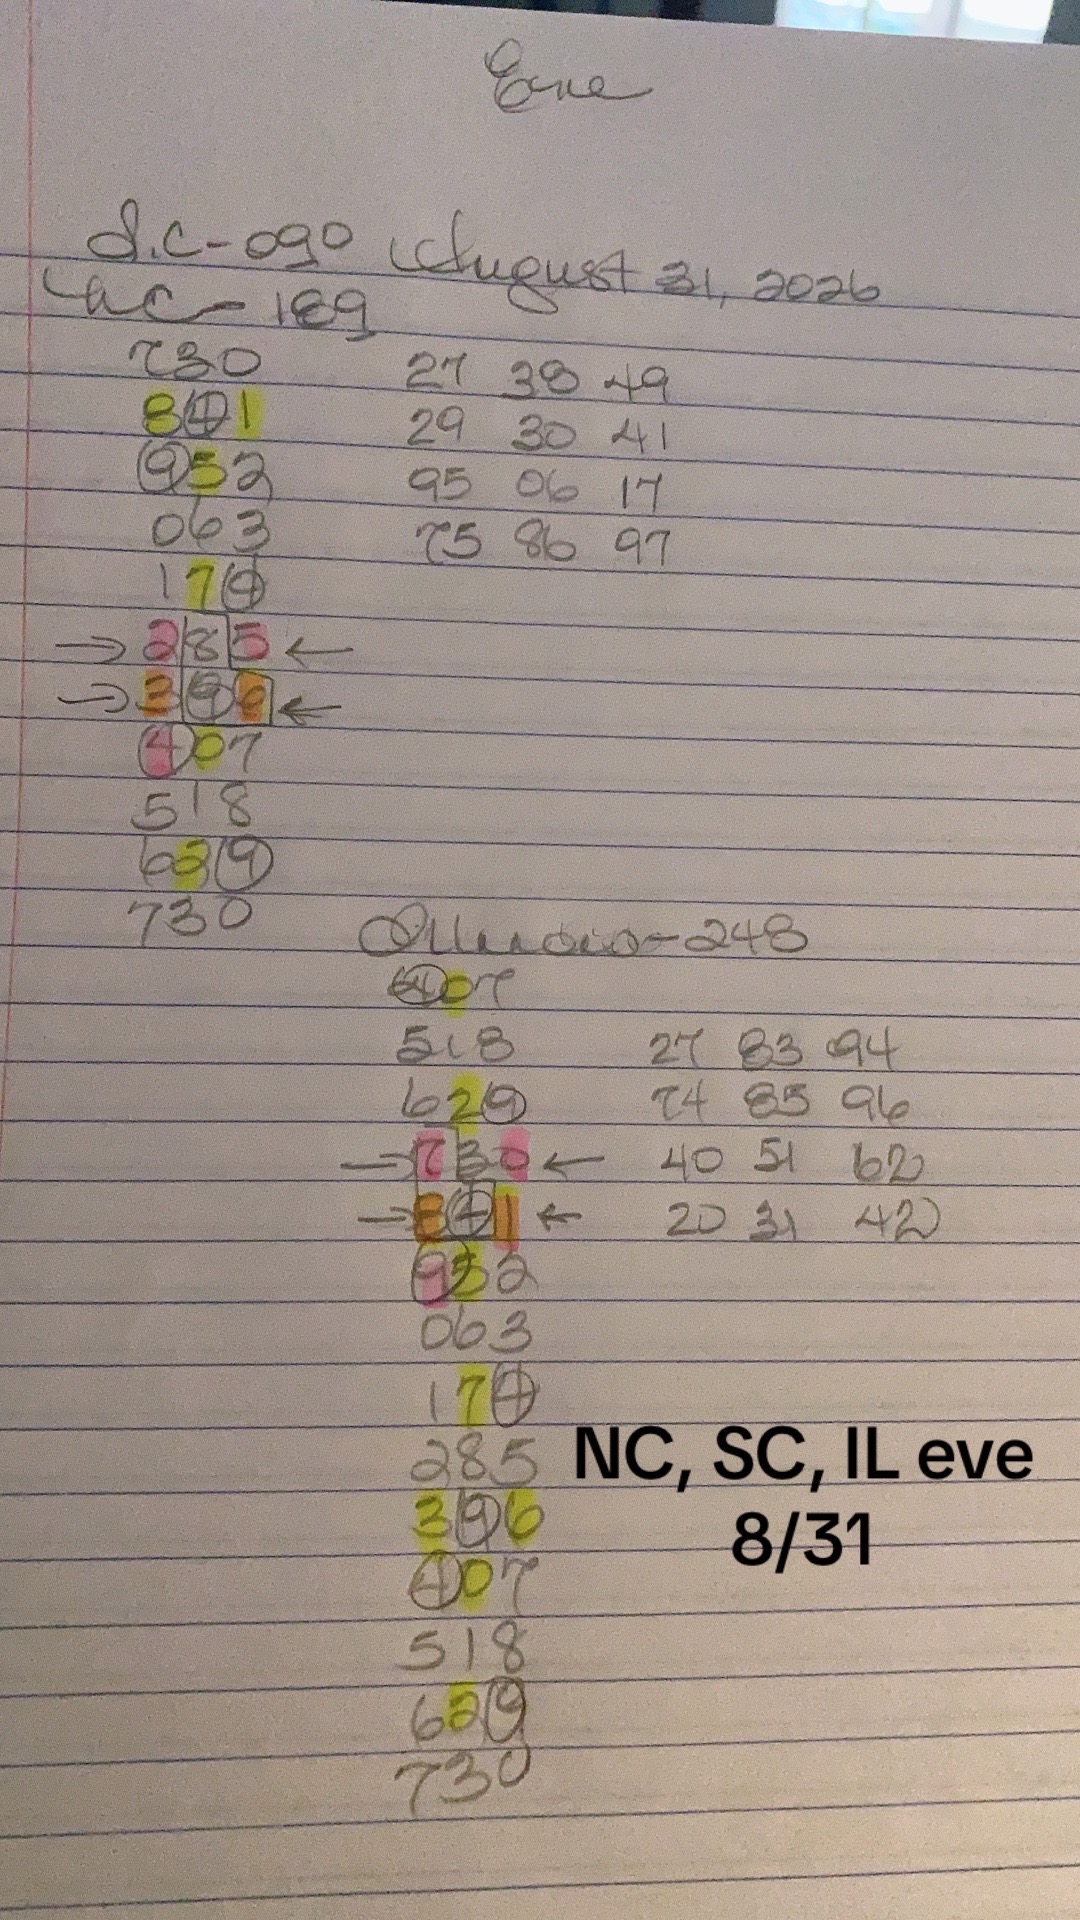 Eve
S.C-090 August 31, 2026
NC-189
730 27 38 49
841 29 30 41
952 95 06 17
063 75 86 97
174
→ 285 ←
→ 396 ←
407
518
629
730
Illinois-248
407
518 27 83 94
629 74 85 96
→ 730 ← 40 51 62
→ 841 ← 20 31 42
952
063
174
285
396
407
518
629
730
NC, SC, IL eve
8/31